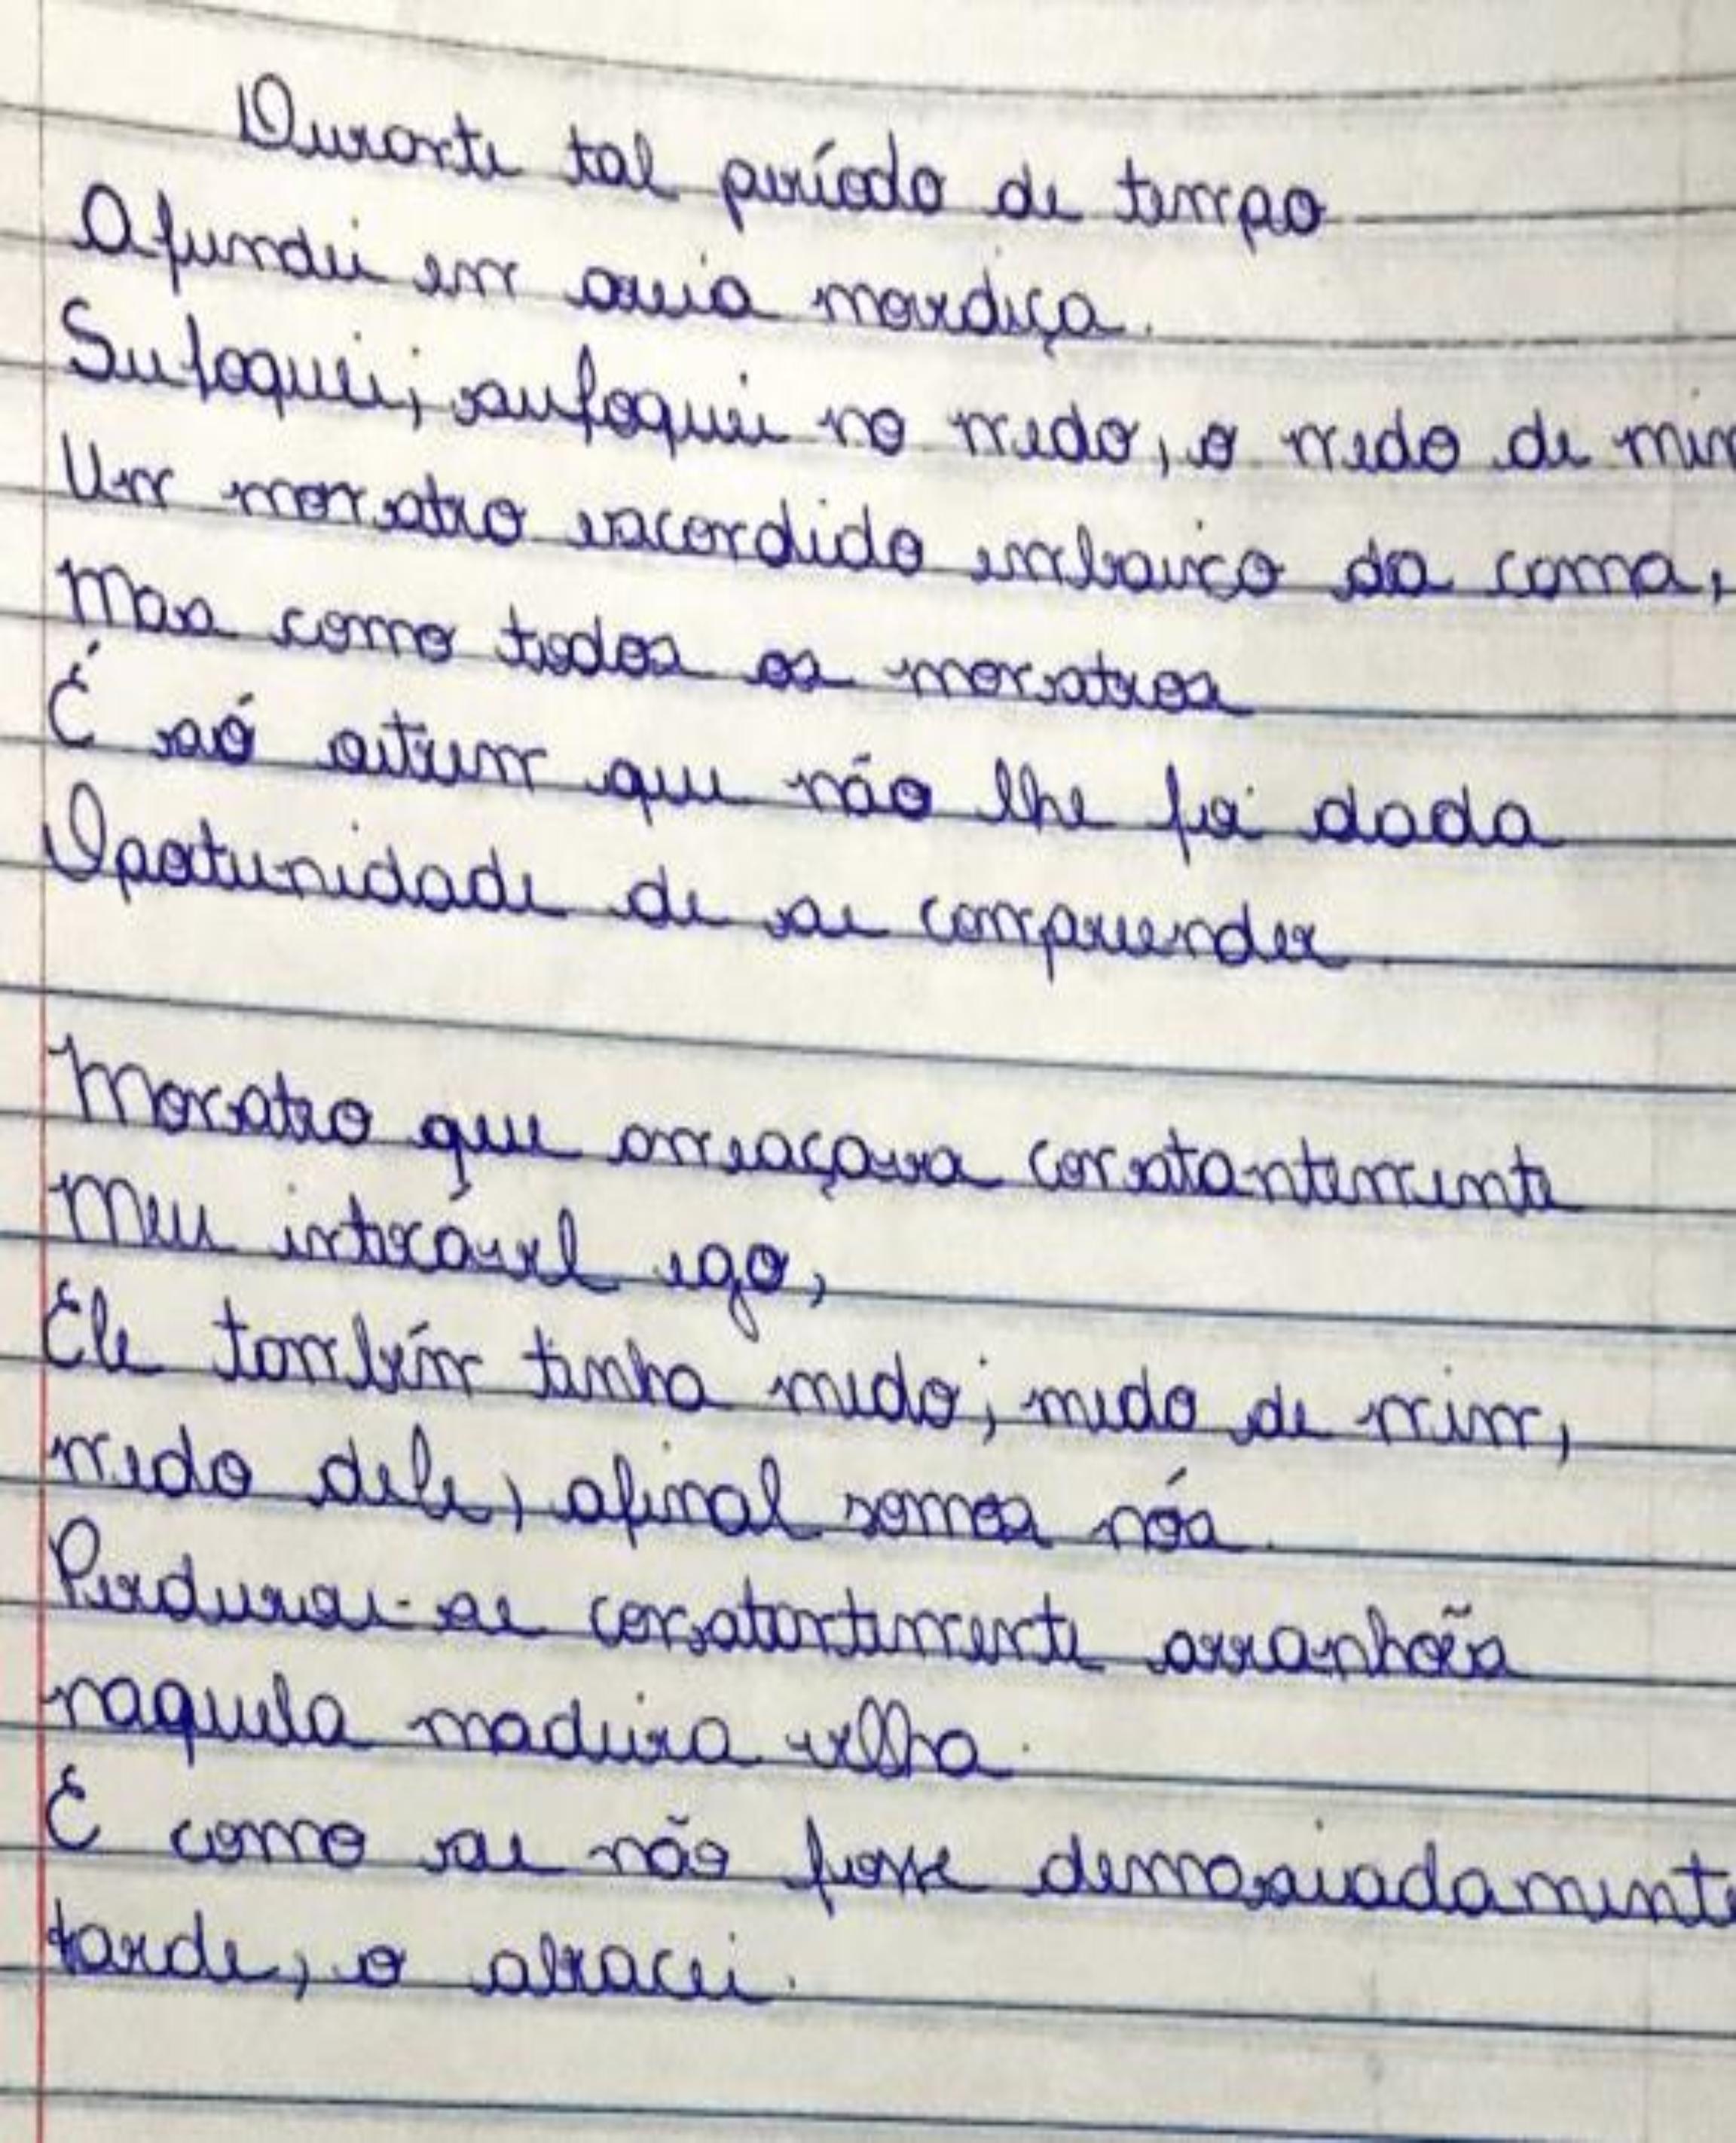 Durante tal período de tempo
Afundei em areia mordiça.
Sufoquei; sufoquei no medo, o medo de mim
Um monstro escondido embaixo da cama,
Mas como todos os monstros
É só outrem que não lhe foi dada
Opotunidade de se compreender.
Monstro que ameaçava constantemente
Meu intocável ego,
Ele também tinha medo; medo de mim,
medo dele, afinal somos nós.
Perdurou-se constantemente arranhões
naquela madeira velha.
E como se não fosse demasiadamente
tarde, o abracei.